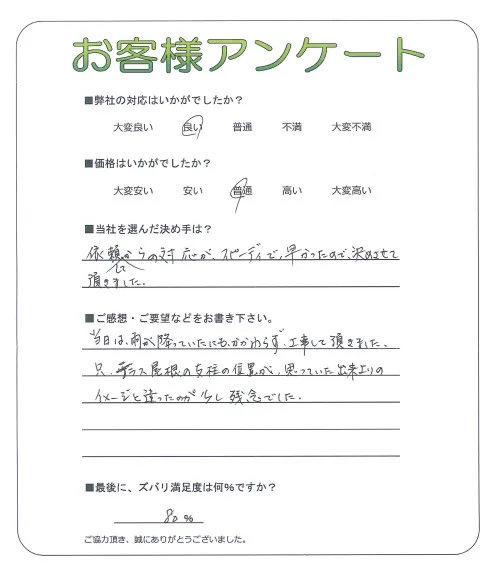 お客様アンケート
■弊社の対応はいかがでしたか？
大変良い 良い 普通 不満 大変不満
■価格はいかがでしたか？
大変安い 安い 普通 高い 大変高い
■当社を選んだ決め手は？
依頼してからの対応が、スピーディで、早かったので、決めさせて
頂きました。
■ご感想・ご要望などをお書き下さい。
当日は、雨が降っていたにもかかわらず、工事して頂きました。
只、テラス屋根の支柱の位置が、思っていた出来上りの
イメージと違ったのが少し残念でした。
■最後に、ズバリ満足度は何％ですか？
80 %
ご協力頂き、誠にありがとうございました。